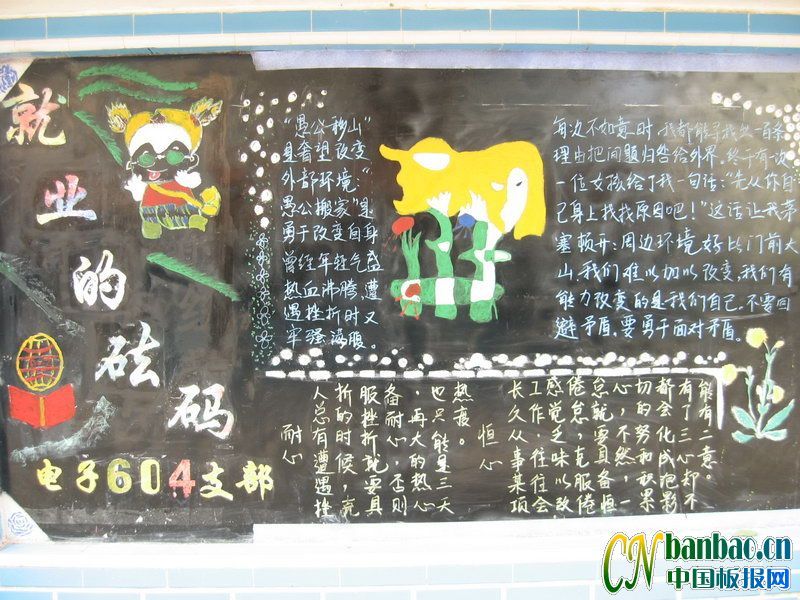 就业的砝码
电子604支部
"愚公移山"
是奢望改变
外部环境:"
愚公搬家"是
勇于改变自身
曾经年轻气盛
热血沸腾,遭
遇挫折时又
牢骚满腹。
每次不如意时,我都能寻找然一百条
理由把问题归咎给外界,终于有一次
一位女孩给了我一句话:"先从你自
己身上找找原因吧!"这话让我茅
塞顿开:周边环境好比门前大
山,我们难以加以改变,我们有
能力改变的是我们自己,不要回
避矛盾,要勇于面对矛盾。
耐心
人总有遭遇挫
折的时候,克
服挫折就要具
备耐心,否则
,再大的热心
也只能是三天
热度。
恒心
长久从事某项
工作,往往会
感觉乏味以致
倦怠,克服倦
怠就要具备恒
心,不然,一
切的努力和效果
都会化成泡影
有了三心却不
能有二意。
CNbanbao.cn
中国板报网